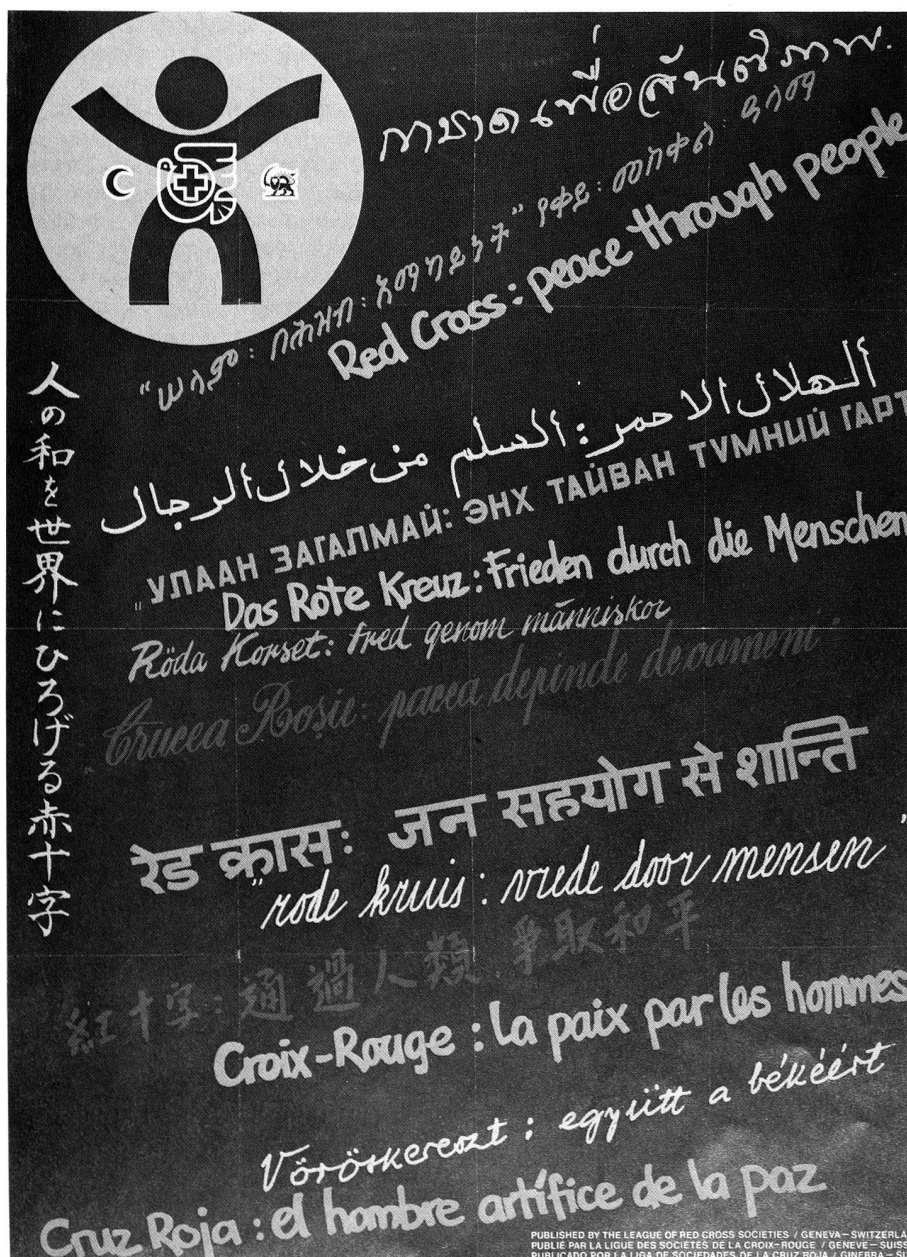 กาชาดเพื่อสันติภาพ.
"ሠላም፡ በሕዝብ፡ አማካይነት" የቀይ፡ መስቀል፡ ዓላማ
Red Cross: peace through people
الهلال الاحمر: السلم من خلال الرجال
"УЛААН ЗАГАЛМАЙ: ЭНХ ТАЙВАН ТУМНИЙ ГАРТ
Das Rote Kreuz: Frieden durch die Menschen
Röda Korset: fred genom människor
"Crucea Roşie: pacea depinde de oameni"
रेड क्रास: जन सहयोग से शान्ति
"rode kruis: vrede door mensen"
紅十字: 通過人類 爭取和平
Croix-Rouge: la paix par les hommes
Vöröskereszt: együtt a békéért
Cruz Roja: el hombre artífice de la paz
人の和を世界にひろげる赤十字
PUBLISHED BY THE LEAGUE OF RED CROSS SOCIETIES / GENEVA – SWITZERLA
PUBLIÉ PAR LA LIGUE DES SOCIÉTÉS DE LA CROIX-ROUGE / GENÈVE – SUISS
PUBLICADO POR LA LIGA DE SOCIEDADES DE LA CRUZ ROJA / GINEBRA – SU